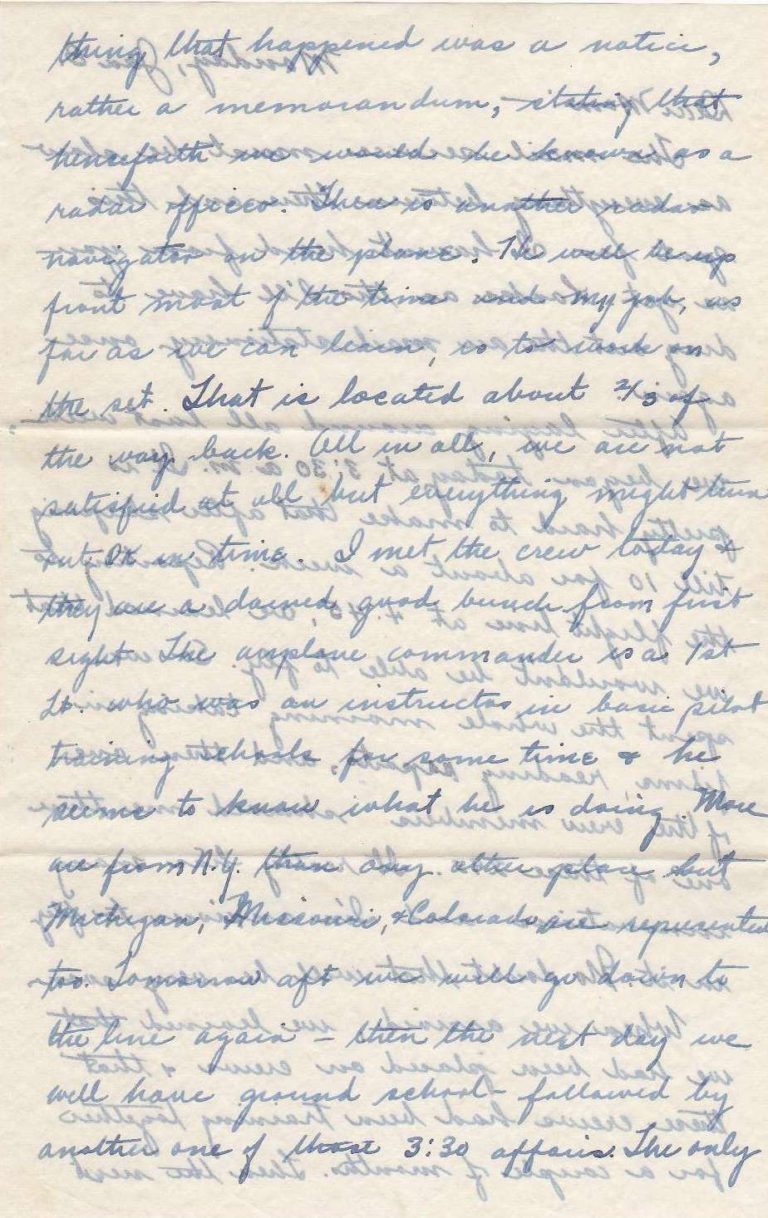 thing that happened was a notice,
rather a memorandum, stating that
henceforth we would be known as a
radar officer. There is another radar
navigator on the plane. He will be up
front most of the time and my job, as
far as we can learn, is to work on
the set. That is located about 2/3 of
the way back. All in all, we are not
satisfied at all but everything might turn
out OK in time. I met the crew today &
they are a darned good bunch from first
sight. The airplane commander is a 1st
Lt. who was an instructor in basic pilot
training schools for some time & he
seems to know what he is doing. More
are from N.Y. than any other place but
Michigan, Missouri, & Colorado are represented
too. Tomorrow aft we will go down to
the line again - then the next day we
will have ground school - followed by
another one of those 3:30 affairs. The only